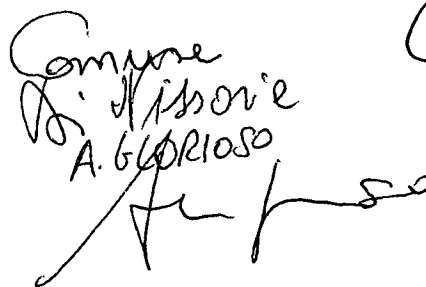 Comune
di Nissorie
A. GLORIOSO